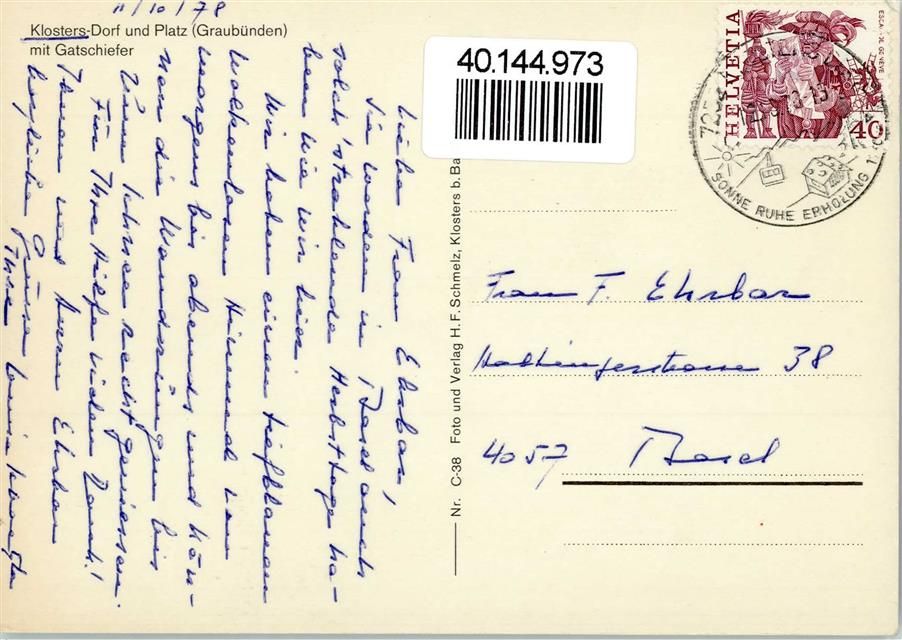 11/10/78
Klosters-Dorf und Platz (Graubünden)
mit Gatschiefer
Liebe Frau Ehrbar,
Sie werden in Basel auch
solch strahlende Herbsttage ha-
ben wie wir hier.
Wir haben einen tiefblauen
wolkenlosen Himmel von
morgens bis abends und kön-
nen die Wanderungen bis
Uhrsee recht geniessen.
Für Ihre Hilfe vielen Dank!
Ihnen und Herrn Ehrbar
herzliche Grüsse
Ihre
Nr. C-38 Foto und Verlag H. F. Schmelz, Klosters b. Ba
40.144.973
HELVETIA
ESCALADE GENÈVE
40
SONNE RUHE ERHOLUNG
Frau F. Ehrbar
Haltingerstrasse 38
4057 Basel